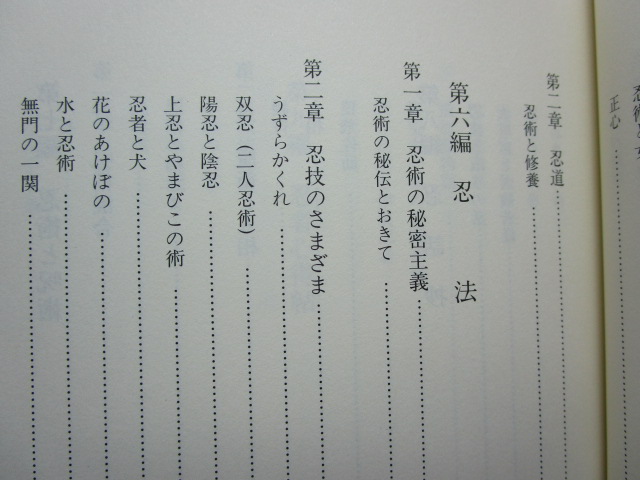 正心
第二章 忍道
忍術と修養
第六編 忍法
第一章 忍術の秘密主義
忍術の秘伝とおきて
第二章 忍技のさまざま
うずらかくれ
双忍(二人忍術)
陽忍と陰忍
上忍とやまびこの術
忍者と犬
花のあけぼの
水と忍術
無門の一関